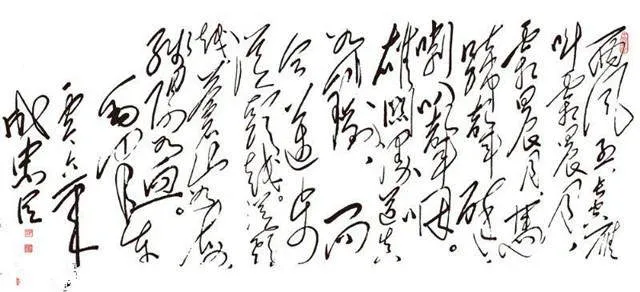 西风烈,长空雁
叫霜晨月,
霜晨月,马
蹄声碎,
喇叭声咽。
雄关漫道真
如铁,而
今迈步
从头越。从头
越,苍山如海,
残阳如血。
毛泽东
六年